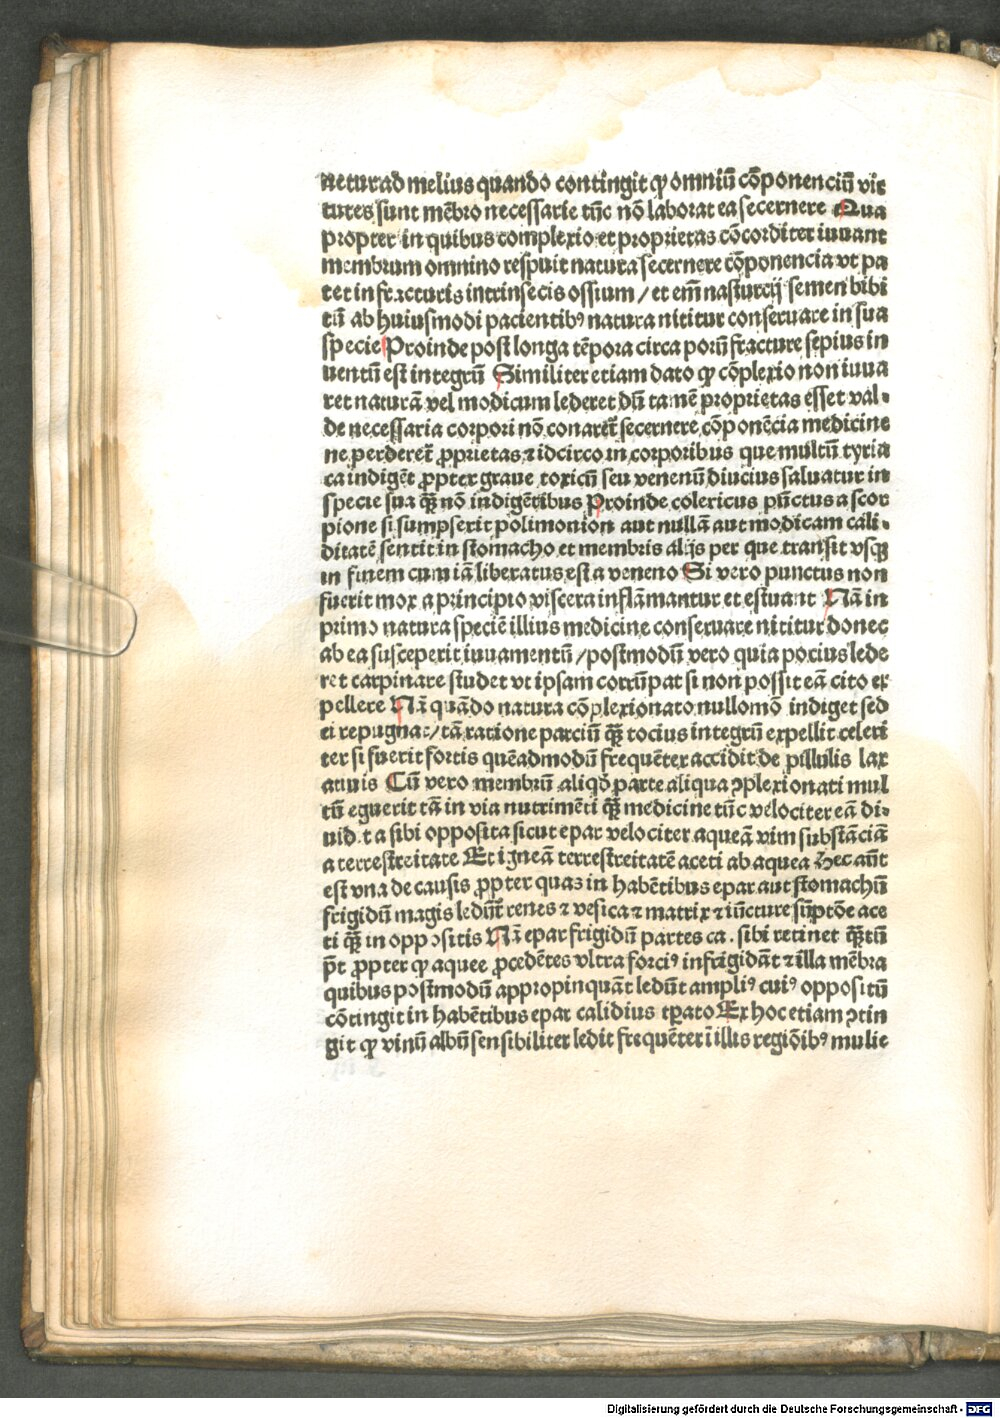 netur ad melius quando contingit ꝙ omniū cōponenciū vir
tutes sunt mēbro necessarie tūc nō laborat ea secernere Qua
propter in quibus complexio et proprietas cōcorditer iuuant
membrum omnino respuit natura secernere cōponencia vt pa
tet in fracturis intrinsecis ossium / et em̄ nasturcij semen bibi
tū ab huiusmodi pacientibꝰ natura nititur conseruare in sua
specie Proinde post longa tēpora circa porū fracture sepius in
uentū est integrū Similiter etiam dato ꝙ cōplexio non iuua
ret naturā vel modicum lederet dū tamē proprietas esset val⸗
de necessaria corpori nō conaret᷑ secernere cōponēcia medicine
ne perderet᷑ ꝓprietas ⁊ idcirco in corporibus que multū tyria
ca indigēt ꝓpter graue toxicū seu venenū diucius saluatur in
specie sua q̄ꝫ nō indigētibus Proinde colericus pūctus a scor
pione si sumpserit polimonion aut nullā aut modicam cali⸗
ditatē sentit in stomacho et membris alijs per que transit vsqꝫ
in finem cum iā liberatus est a veneno Si vero punctus non
fuerit mox a principio viscera inflāmantur et estuant Nā in
primo natura speciē illius medicine conseruare nititur donec
ab ea susceperit iuuamentū / postmodū vero quia pocius lede
ret carpinare studet vt ipsam corrūpat si non possit eā cito ex
pellere Nā quādo natura cōplexionato nullomō indiget sed
ei repugnat / tā ratione parciū q̄ꝫ tocius integrū expellit celeri
ter si fuerit fortis quēadmodū frequēter accidit de pillulis lax
atiuis Cū vero membrū aliqđ parte aliqua ꝯplexionati mul
tū eguerit tā in via nutrimēti q̄ꝫ medicine tūc velociter eā di⸗
uidit a sibi opposita sicut epar velociter aqueā vim substāciā
a terrestreitate Et igneā terrestreitatē aceti ab aquea Hec aūt
est vna de causis ꝓpter quas in habētibus epar aut stomachū
frigidū magis ledūt᷑ renes ⁊ vesica ⁊ matrix ⁊ iūcture sūptōe ace
ti q̄ꝫ in oppositis Nā epar frigidū partes ca. sibi retinet q̄ꝫtū
p̄t ꝓpter ꝙ aquee ꝓcedētes vltra forciꝰ infrigidāt ⁊ illa mēbra
quibus postmodū appropinquāt ledūt ampliꝰ cuiꝰ oppositū
cōtingit in habētibus epar calidius tꝑato Ex hoc etiam ꝯtin
git ꝙ vinū albū sensibiliter ledit frequēter ī illis regiōibꝰ mulie
Digitalisierung gefördert durch die Deutsche Forschungsgemeinschaft - DFG